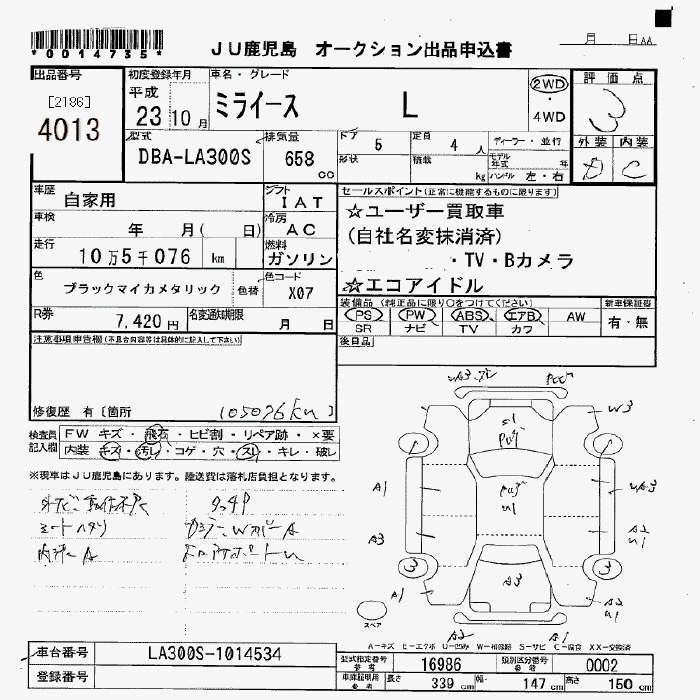 *0014735*
JU鹿児島 オークション出品申込書
月 日AA
出品番号
[2186]
4013
初度登録年月
平成
23 10 月
車名・グレード
ミライース L
2WD
・
4WD
評価点
3
外装 内装
D C
型式
DBA-LA300S
排気量
658
cc
ドア
5
定員
4 人
形状
積載
kg
ディーラー・並行
モデル年式 年
ハンドル 左・右
車歴
自家用
シフト
IAT
車検
年 月( 日)
冷房
AC
走行
10万5千076 km
燃料
ガソリン
色
ブラックマイカメタリック
色替
色コード
X07
R券
7,420円
名変通知期限
月 日
セールスポイント(正常に機能するものに限ります)
☆ユーザー買取車
(自社名変抹消済)
・TV・Bカメラ
☆エコアイドル
装備品 (純正品に限り○をつけてください)
新車保証書
PS PW ABS エアB AW
SR ナビ TV カワ
有・無
後日品
注意事項申告欄(不具合内容等は具体的に記入して下さい)
修復歴 有〔箇所
105076km〕
検査員記入欄
FW キズ・飛石・ヒビ割・リペア跡・×要
内装 キズ・汚レ・コゲ・穴・スレ・キレ・破レ
※現車はJU鹿児島にあります。陸送費は落札店負担となります。
シートヘタリ
内張A
W3
A1
A3
A2
U1
A3
A1
A2
U1
A2
A1
3
3
スペア
A-キズ E-エクボ U-凹み W-補修跡 S-サビ C-腐食 XX-交換済
車台番号
LA300S-1014534
登録番号
型式指定番号
参考
16986
類別区分番号
参考
0002
車庫証明用
参考
長さ
339 cm
幅
147 cm
高さ
150 cm